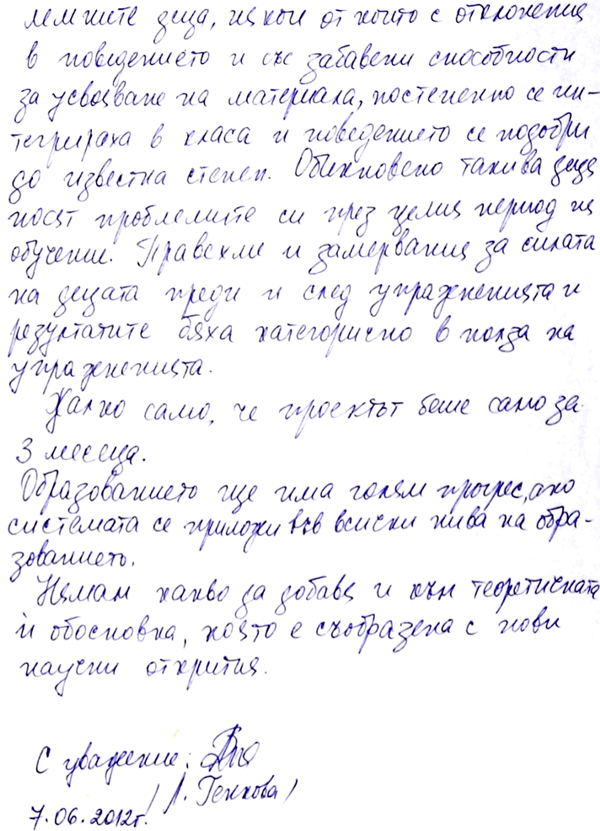 лемните деца, някои от които с отклонения
в поведението и със забавени способности
за усвояване на материала, постепенно се ин-
тегрираха в класа и поведението се подобри
до известна степен. Обикновено такива деца
носят проблемите си през целия период на
обучение. Правехме и замервания за силата
на децата преди и след упражненията и
резултатите бяха категорично в полза на
упражненията.
Жалко само, че проектът беше само за
3 месеца.
Образованието ще има голям прогрес, ако
системата се приложи във всички нива на обра-
зованието.
Нямам какво да добавя и към теоретичната
ѝ обосновка, която е съобразена с нови
научни открития.
С уважение:
/ Генкова /
7.06.2012г.